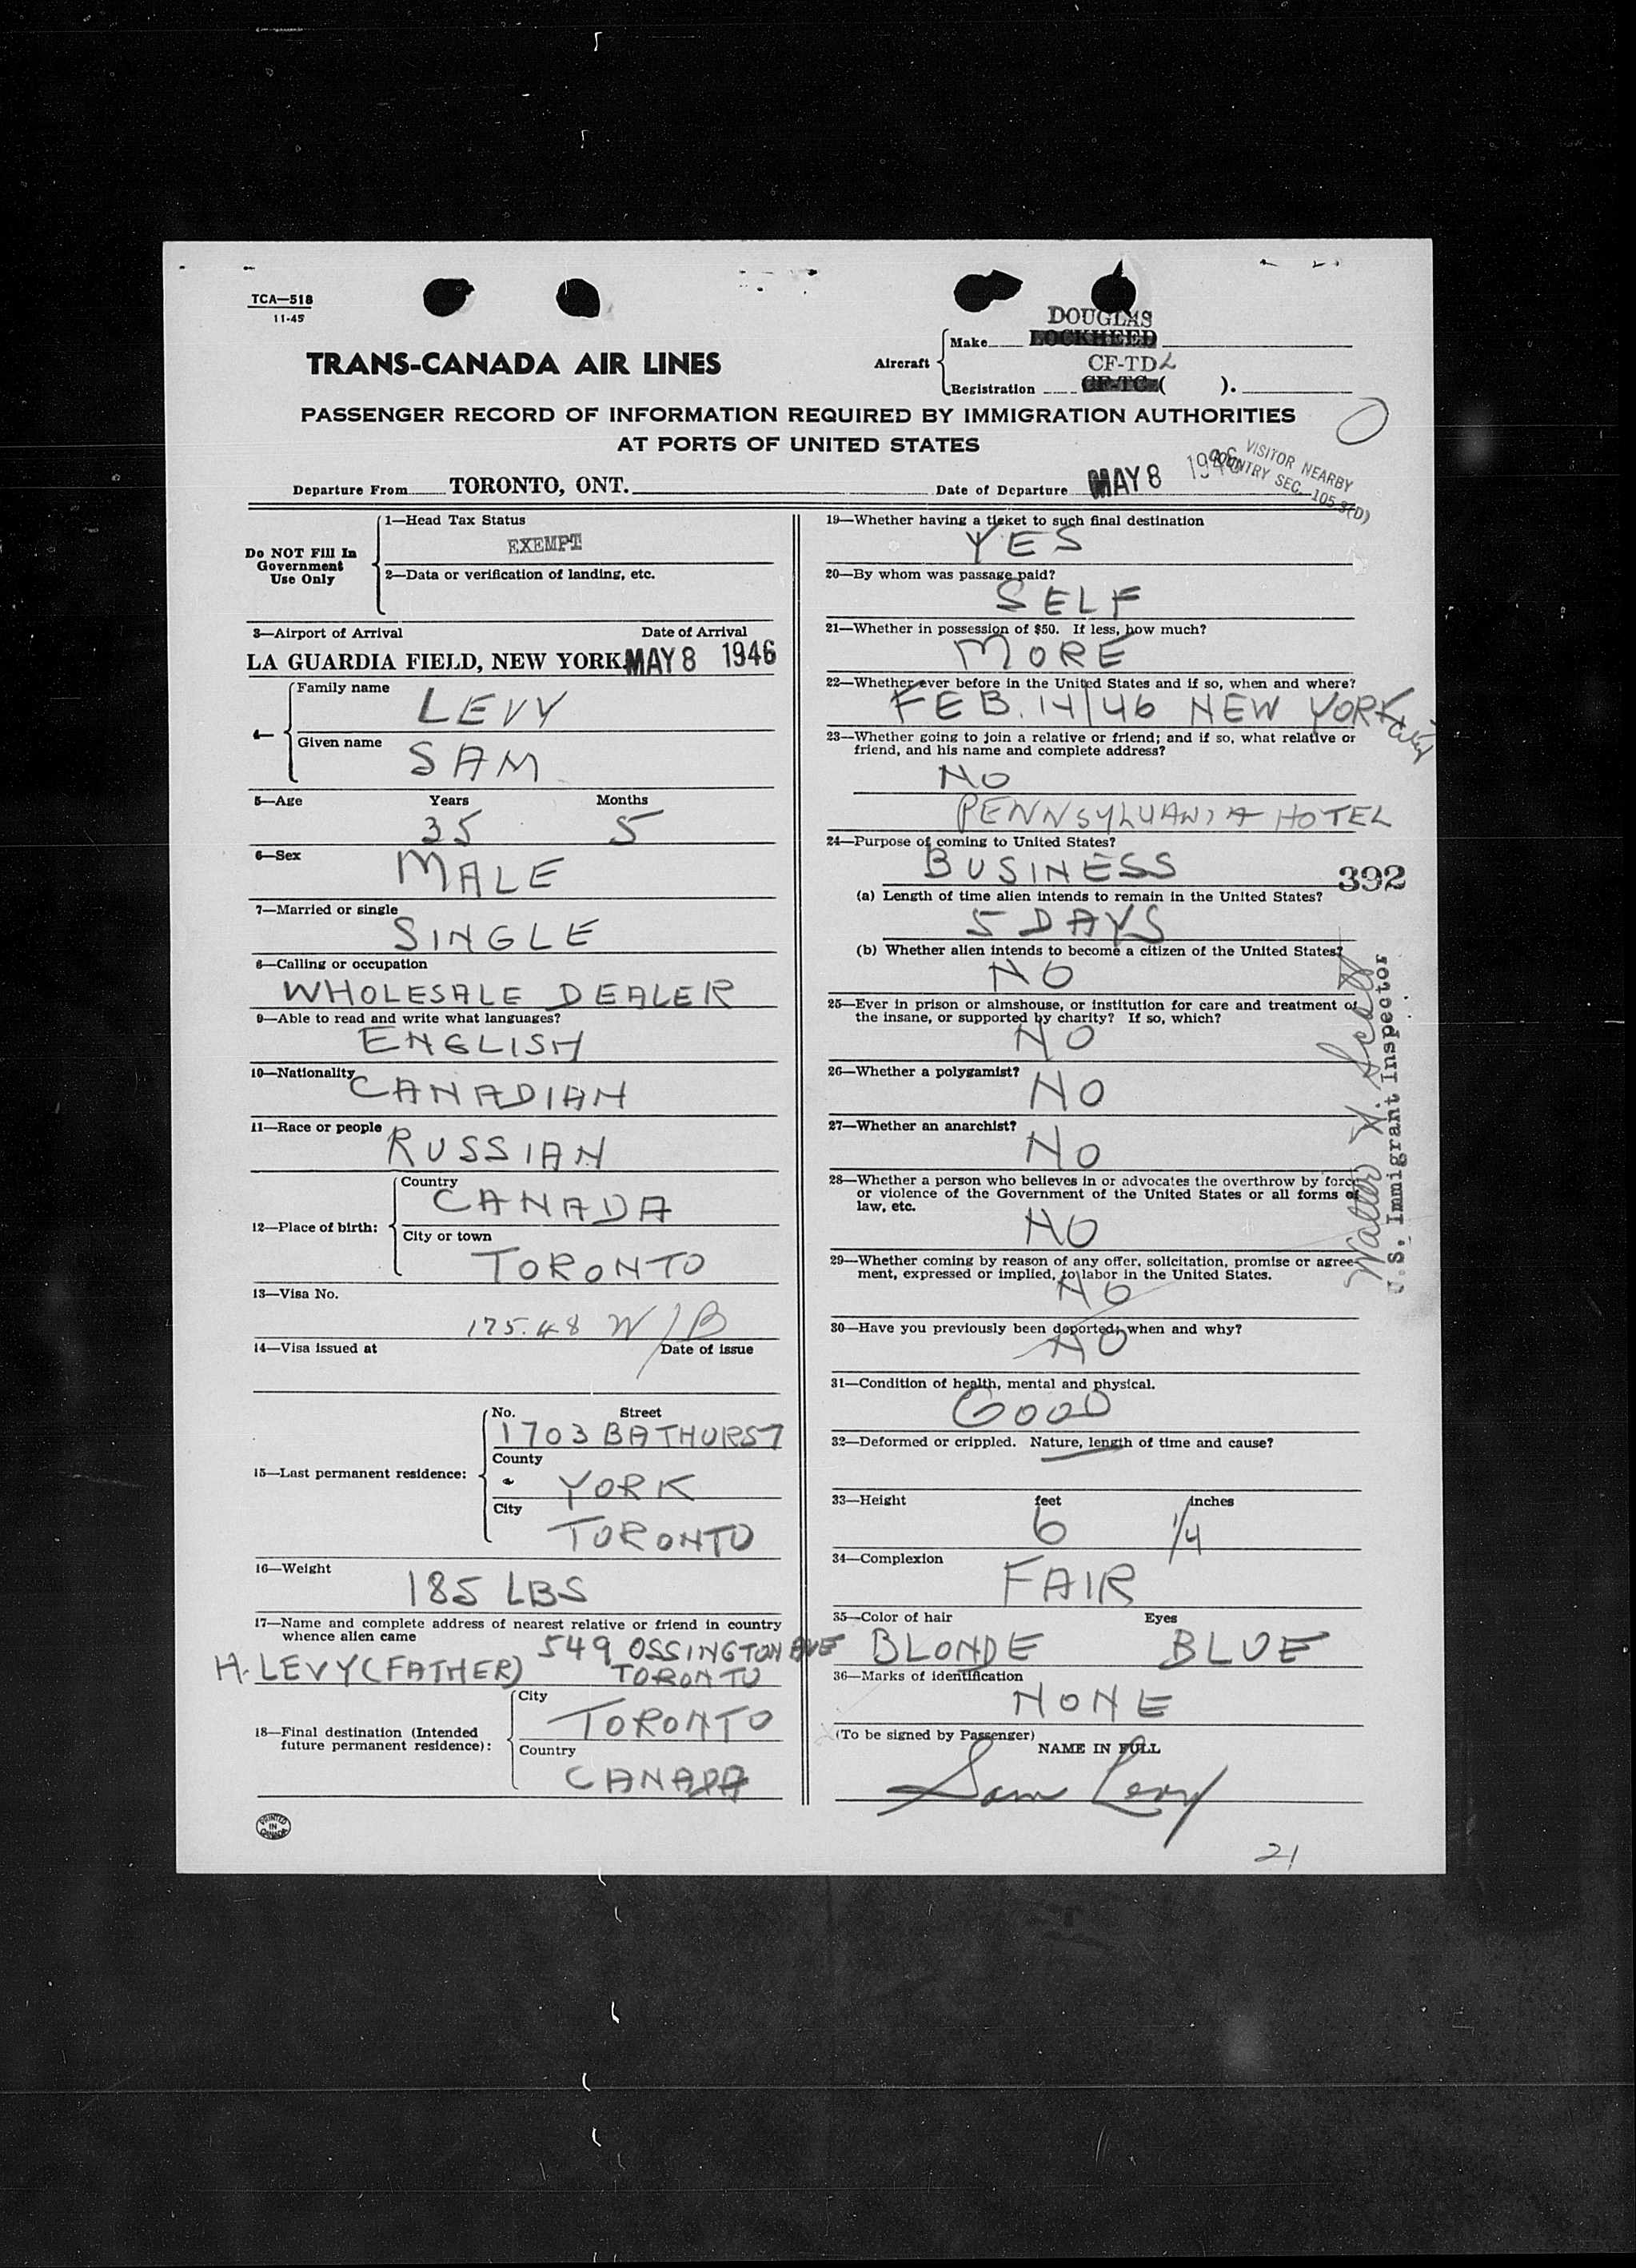 TCA—518
11-45
DOUGLAS
Make LOCKHEED
TRANS-CANADA AIR LINES
Aircraft
CF-TDL
Registration CF-TC-( ).
PASSENGER RECORD OF INFORMATION REQUIRED BY IMMIGRATION AUTHORITIES
AT PORTS OF UNITED STATES
VISITOR NEARBY
COUNTRY SEC. 105.3(D)
Departure From TORONTO, ONT. Date of Departure MAY 8 1946
Do NOT Fill In
Government
Use Only
1—Head Tax Status
EXEMPT
2—Data or verification of landing, etc.
3—Airport of Arrival Date of Arrival
LA GUARDIA FIELD, NEW YORK MAY 8 1946
4—
Family name
LEVY
Given name
SAM
5—Age Years Months
35 5
6—Sex
MALE
7—Married or single
SINGLE
8—Calling or occupation
WHOLESALE DEALER
9—Able to read and write what languages?
ENGLISH
10—Nationality
CANADIAN
11—Race or people
RUSSIAN
12—Place of birth:
Country
CANADA
City or town
TORONTO
13—Visa No.
175.48 W/B
14—Visa issued at Date of issue
15—Last permanent residence:
No. Street
1703 BATHURST
County
YORK
City
TORONTO
16—Weight
185 LBS
17—Name and complete address of nearest relative or friend in country
whence alien came
549 OSSINGTON AVE
H. LEVY (FATHER) TORONTO
18—Final destination (Intended
future permanent residence):
City
TORONTO
Country
CANADA
PRINTED
IN
CANADA
19—Whether having a ticket to such final destination
YES
20—By whom was passage paid?
SELF
21—Whether in possession of $50. If less, how much?
MORE
22—Whether ever before in the United States and if so, when and where?
FEB. 14/46 NEW YORK City
23—Whether going to join a relative or friend; and if so, what relative or
friend, and his name and complete address?
NO
PENNSYLVANIA HOTEL
24—Purpose of coming to United States?
BUSINESS
392
(a) Length of time alien intends to remain in the United States?
5 DAYS
(b) Whether alien intends to become a citizen of the United States?
NO
25—Ever in prison or almshouse, or institution for care and treatment of
the insane, or supported by charity? If so, which?
NO
26—Whether a polygamist?
NO
27—Whether an anarchist?
NO
28—Whether a person who believes in or advocates the overthrow by force
or violence of the Government of the United States or all forms of
law, etc.
NO
29—Whether coming by reason of any offer, solicitation, promise or agree-
ment, expressed or implied, to labor in the United States.
NO
30—Have you previously been deported; when and why?
NO
31—Condition of health, mental and physical.
GOOD
32—Deformed or crippled. Nature, length of time and cause?
33—Height feet inches
6 1/4
34—Complexion
FAIR
35—Color of hair Eyes
BLONDE BLUE
36—Marks of identification
NONE
(To be signed by Passenger)
NAME IN FULL
Sam Levy
21
Walter H.
U.S. Immigrant Inspector